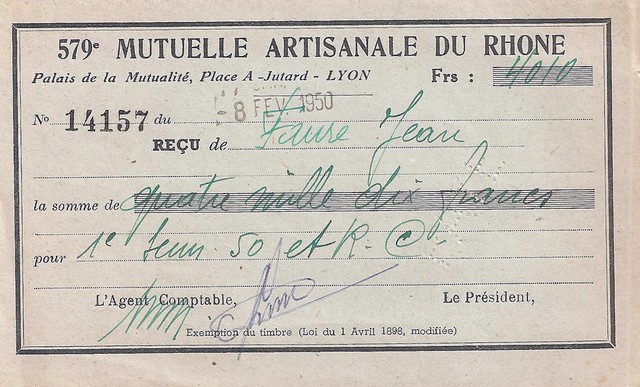 579e MUTUELLE ARTISANALE DU RHONE
Palais de la Mutualité, Place A-Jutard - LYON Frs : 4010
No 14157 du - 8 FEV. 1950
REÇU de Faure Jean
la somme de quatre mille dix francs
pour 1e Sem. 50 et R. C.
L'Agent Comptable, Le Président,
Exemption du timbre (Loi du 1 Avril 1898, modifiée)